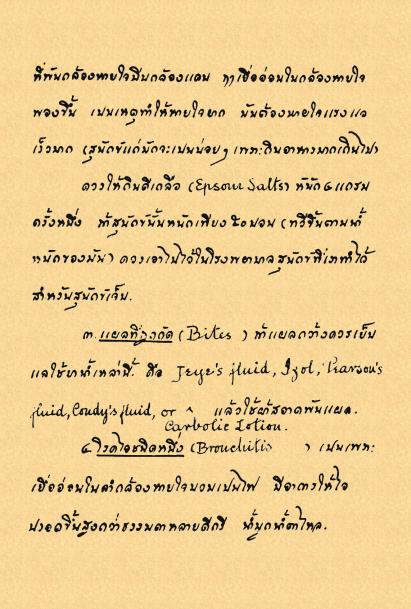 กล้องหายใจ กล้องแคบ เยื่ออ่อนในกล้องหายใจ
พองขึ้น เปนเหตุทำให้หายใจยาก มันต้องหายใจแรงแล
เร็วมาก (สุนัขแก่มักจะเปนบ่อยๆ เพราะกินอาหารมากเกินไป)
ควรให้กินดีเกลือ (Epsom Salts) หนัก ๔ แดรม
ครั้งหนึ่ง ถ้าสุนัขนั้นหนักเพียง ๕๐ ปอน (ทวีขึ้นตามน้ำ
หนักของมัน) ควรเอาไปไว้ในโรงพยาบาลสุนัขที่เขาทำไว้
สำหรับสุนัขเจ็บ.
๓. แผลที่ถูกกัด (Bites ) ถ้าแผลกว้างควรเย็บ
แลใช้ยาน้ำเหล่านี้ คือ Jeye's fluid, Izol, Pearson's
fluid, Condy's fluid, or ^ แล้วใช้ผ้าสอาดพันแผล.
Carbolic Lotion.
๔ โรคไอชนิดหนึ่ง (Bronchitis ) เปนเพราะ
เยื่ออ่อนในลำกล้องหายใจบวมเปนไฟ มีอาการให้ไอ
ปรอดขึ้นสูงกว่าธรรมดาหลายดีกรี น้ำมูกน้ำตาไหล.